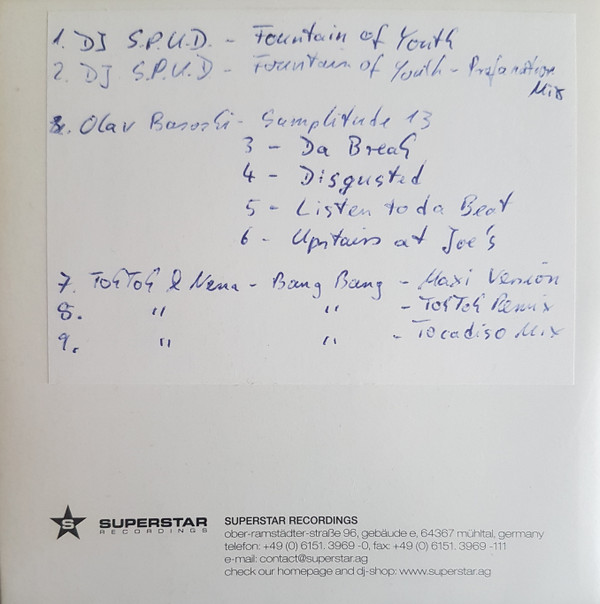 1. DJ S.P.U.D. - Fountain of Youth
2. DJ S.P.U.D - Fountain of Youth - Mix
Olav Basoski - Samplitude 13
3 - Da Break
4 - Disgusted
5 - Listen to da Beat
6 - Upstairs at Joe's
7. TokTok & Nena - Bang Bang - Maxi Version
8. " " - TokTok Remix
9. " " - Tocadiso Mix
SUPERSTAR
RECORDINGS
SUPERSTAR RECORDINGS
ober-ramstädter-straße 96, gebäude e, 64367 mühltal, germany
telefon: +49 (0) 6151. 3969 -0, fax: +49 (0) 6151. 3969 -111
e-mail: contact@superstar.ag
check our homepage and dj-shop: www.superstar.ag